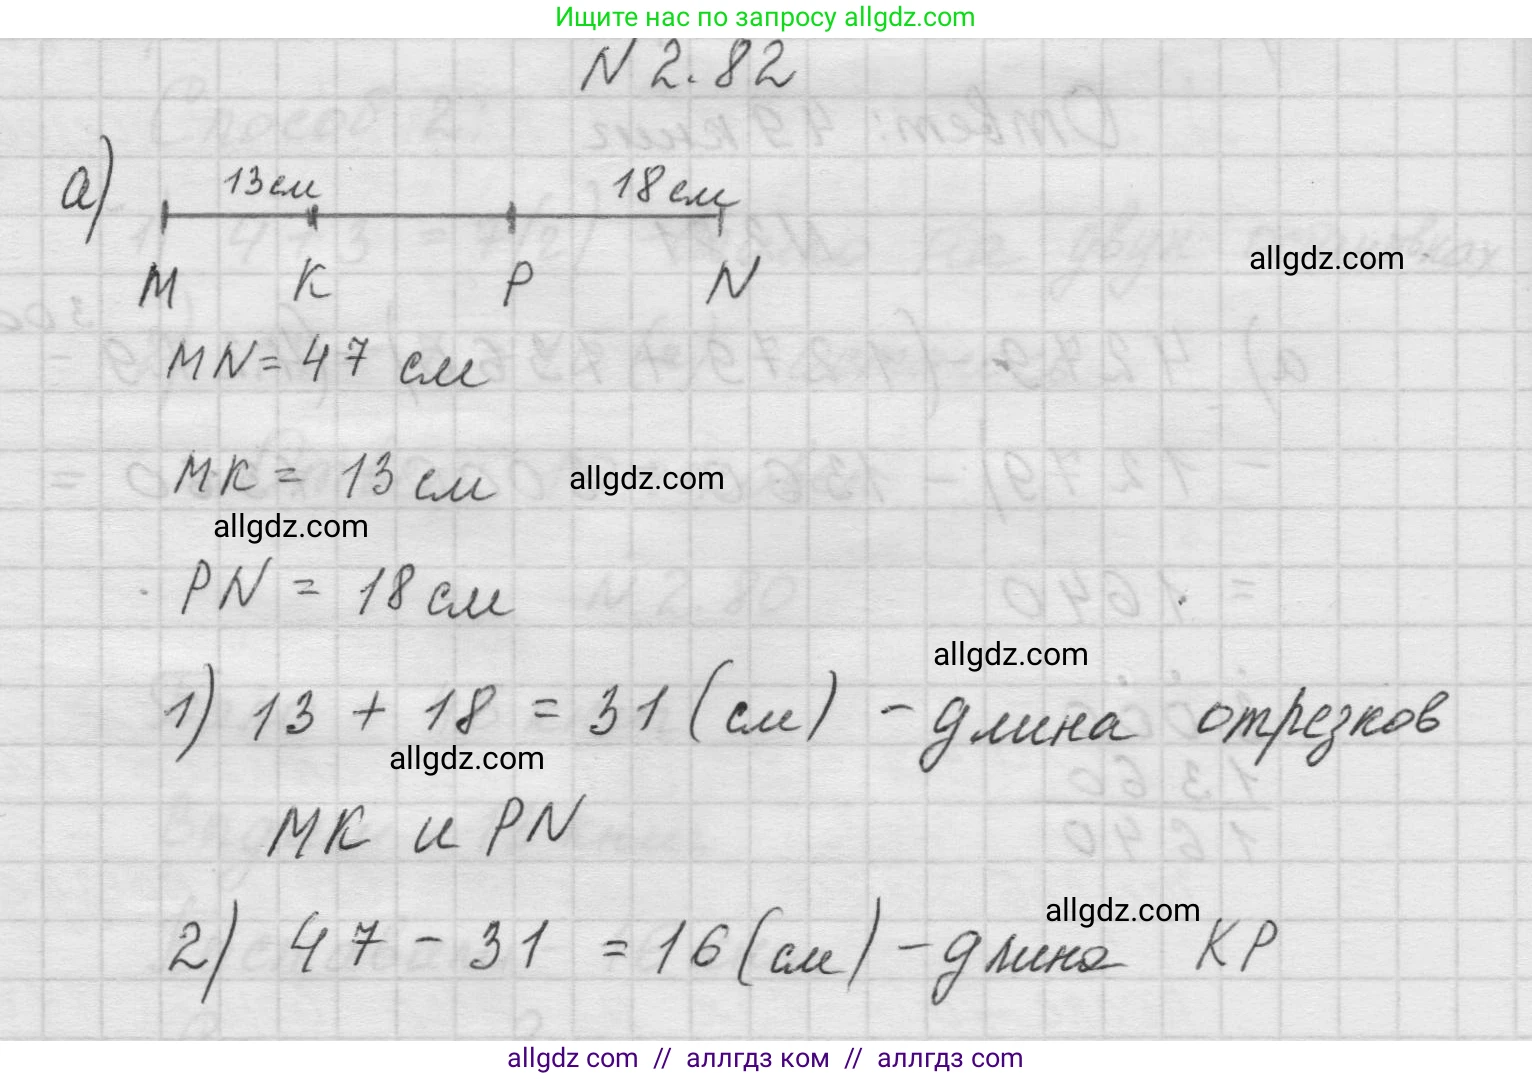 Ищите нас по запросу allgdz.com
N 2.82
а) 13см 18см
M K P N
allgdz.com
MN = 47 см
MK = 13 см
allgdz.com
allgdz.com
PN = 18 см
allgdz.com
1) 13 + 18 = 31 (см) - длина отрезков
allgdz.com
MK и PN
allgdz.com
2) 47 - 31 = 16 (см) - длина KP
allgdz com // аллгдз ком // аллгдз com